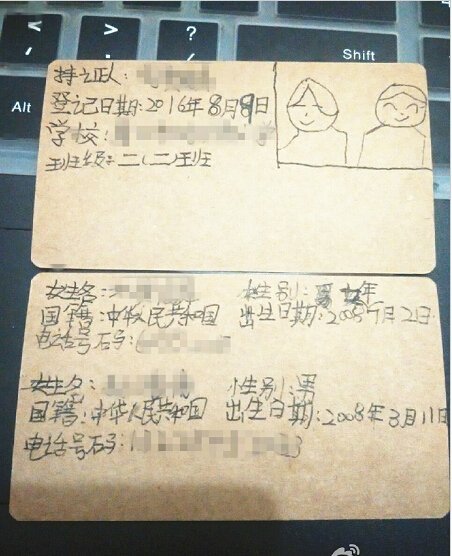 <
>
?
/
Shift
Alt
持证人:
登记日期:2016年8月8日
学校:
班级:二(二)班
女生名:
性别:女
国籍:中华民共和国
出生日期:2008年7月2日
电话号码:
女生名:
性别:男
国籍:中华人民共和国
出生日期:2008年3月11日
电话号码: